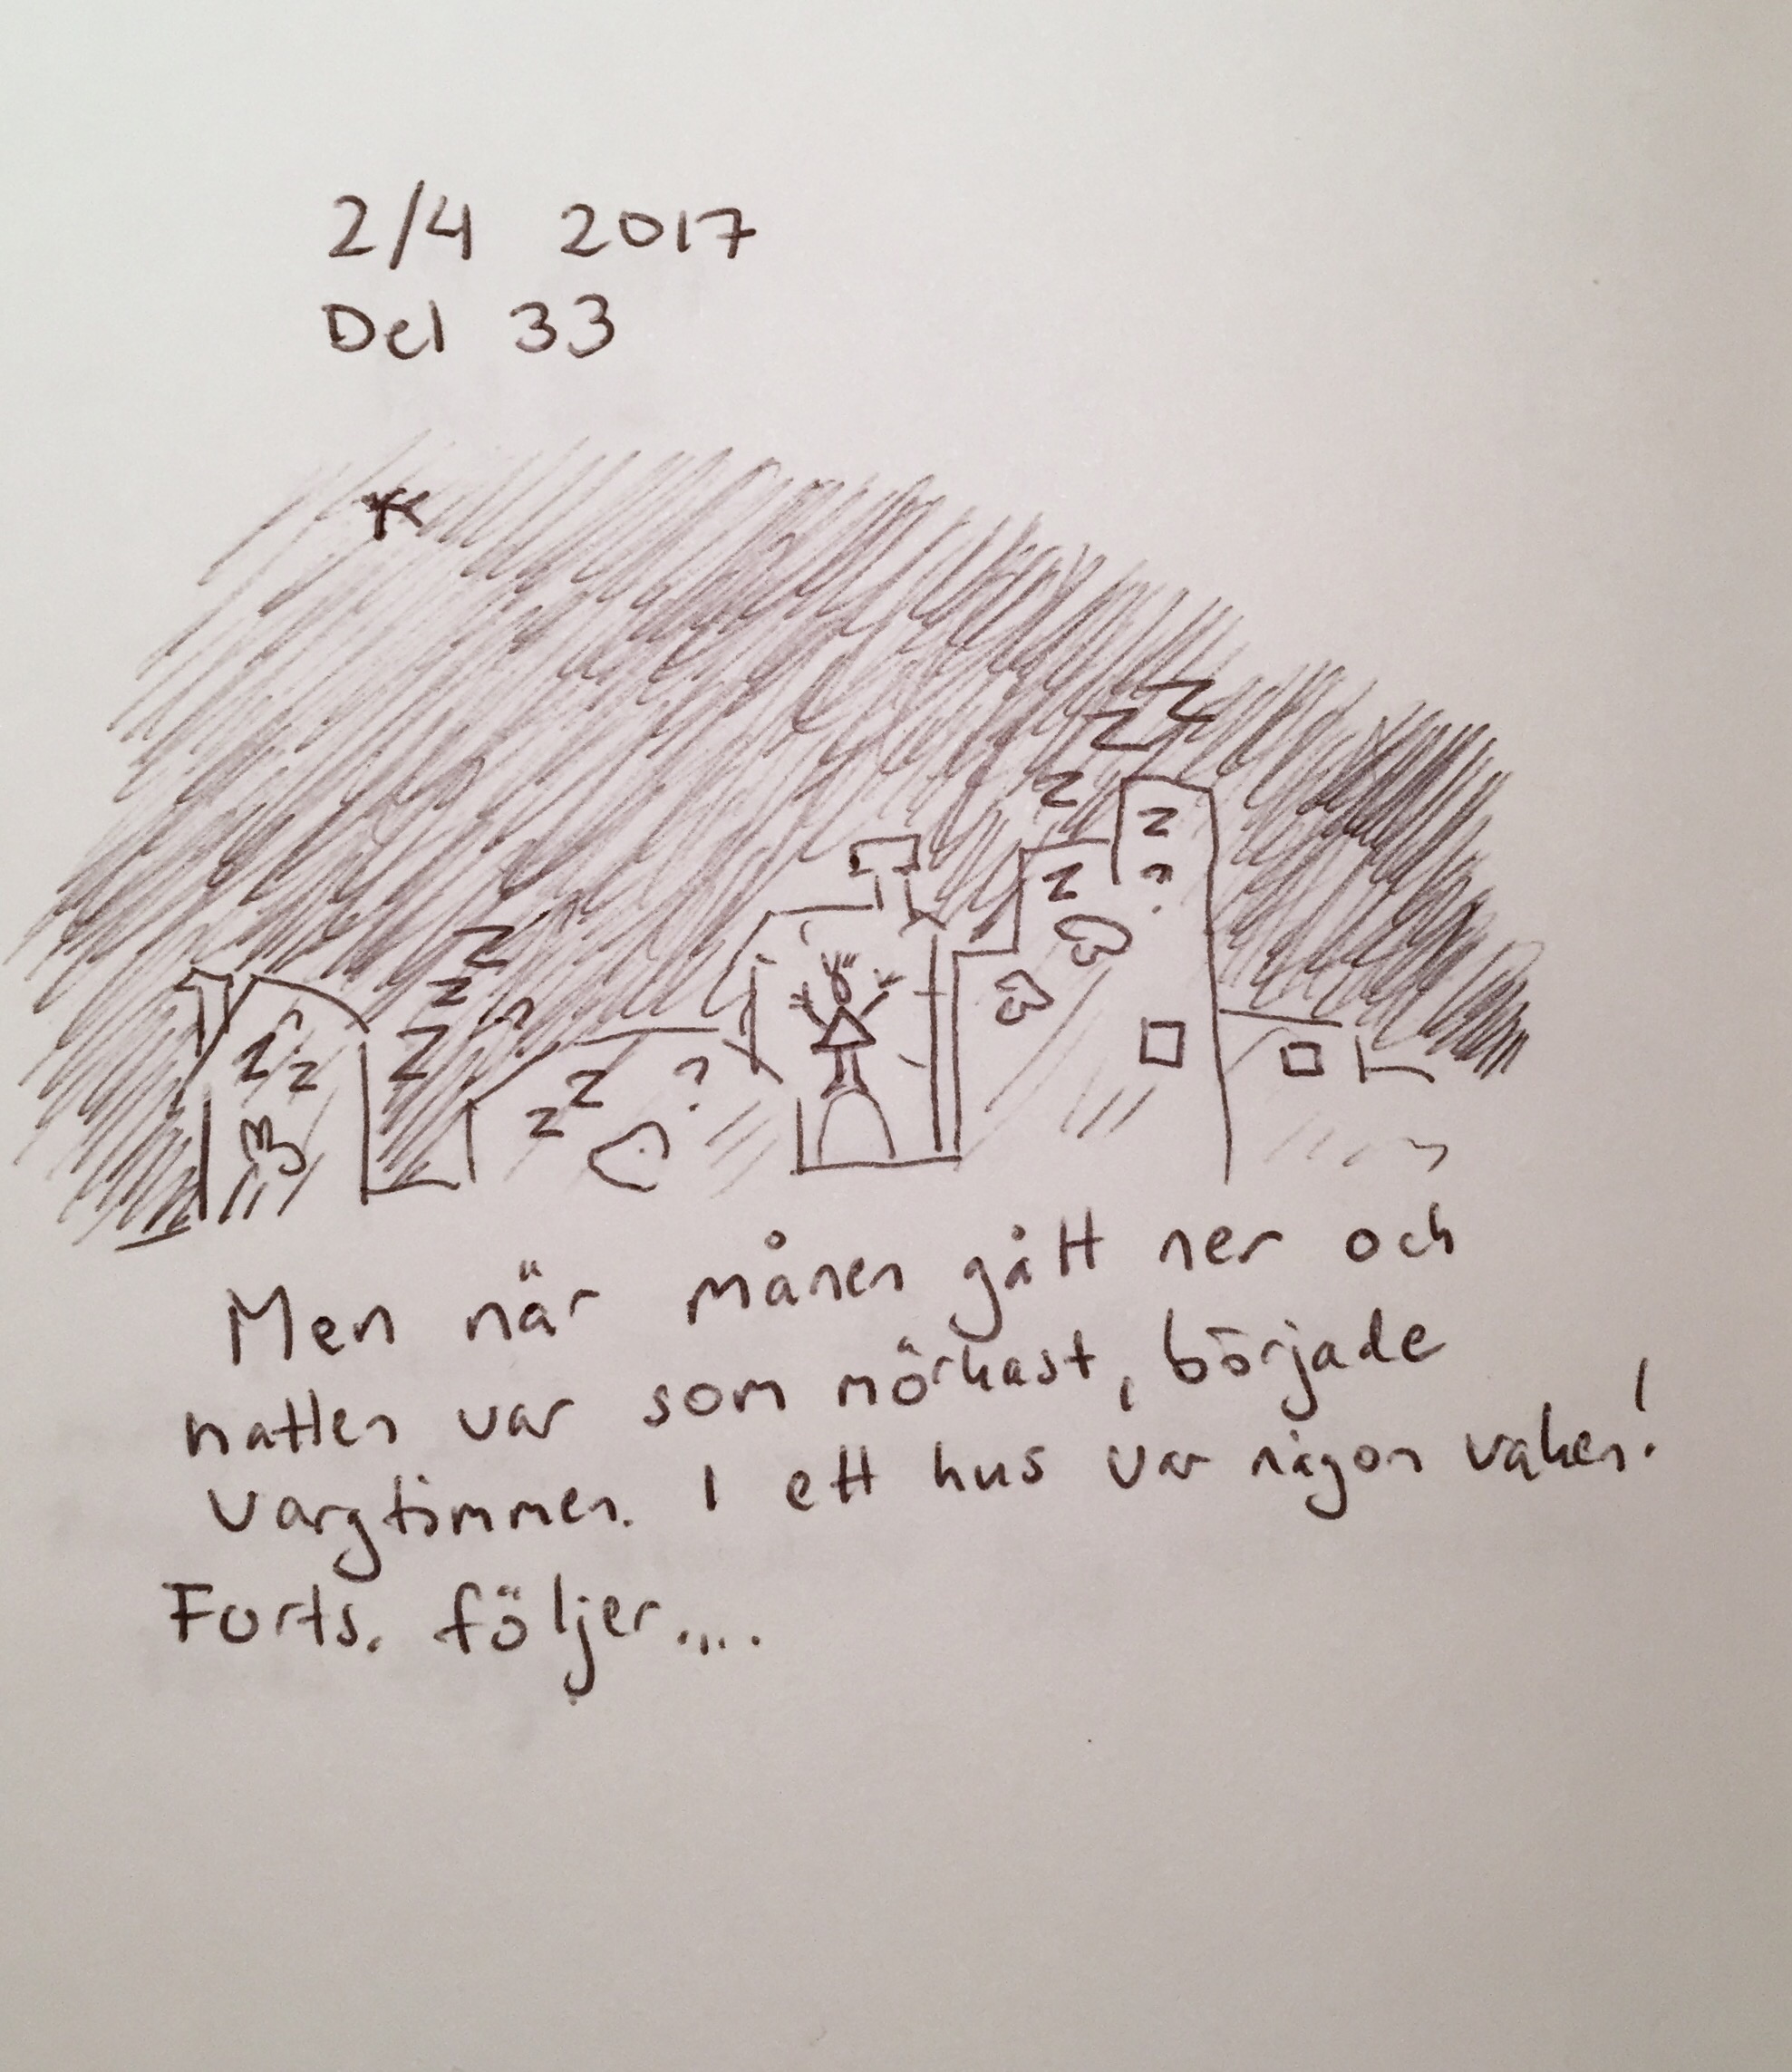 2/4 2017
Del 33
z
z
z
z
z ?
z
z
z
z z ?
z ?
z z ?
Men när månen gått ner och
natten var som mörkast, började
vargtimmen. I ett hus var någon vaken!
Forts. följer....